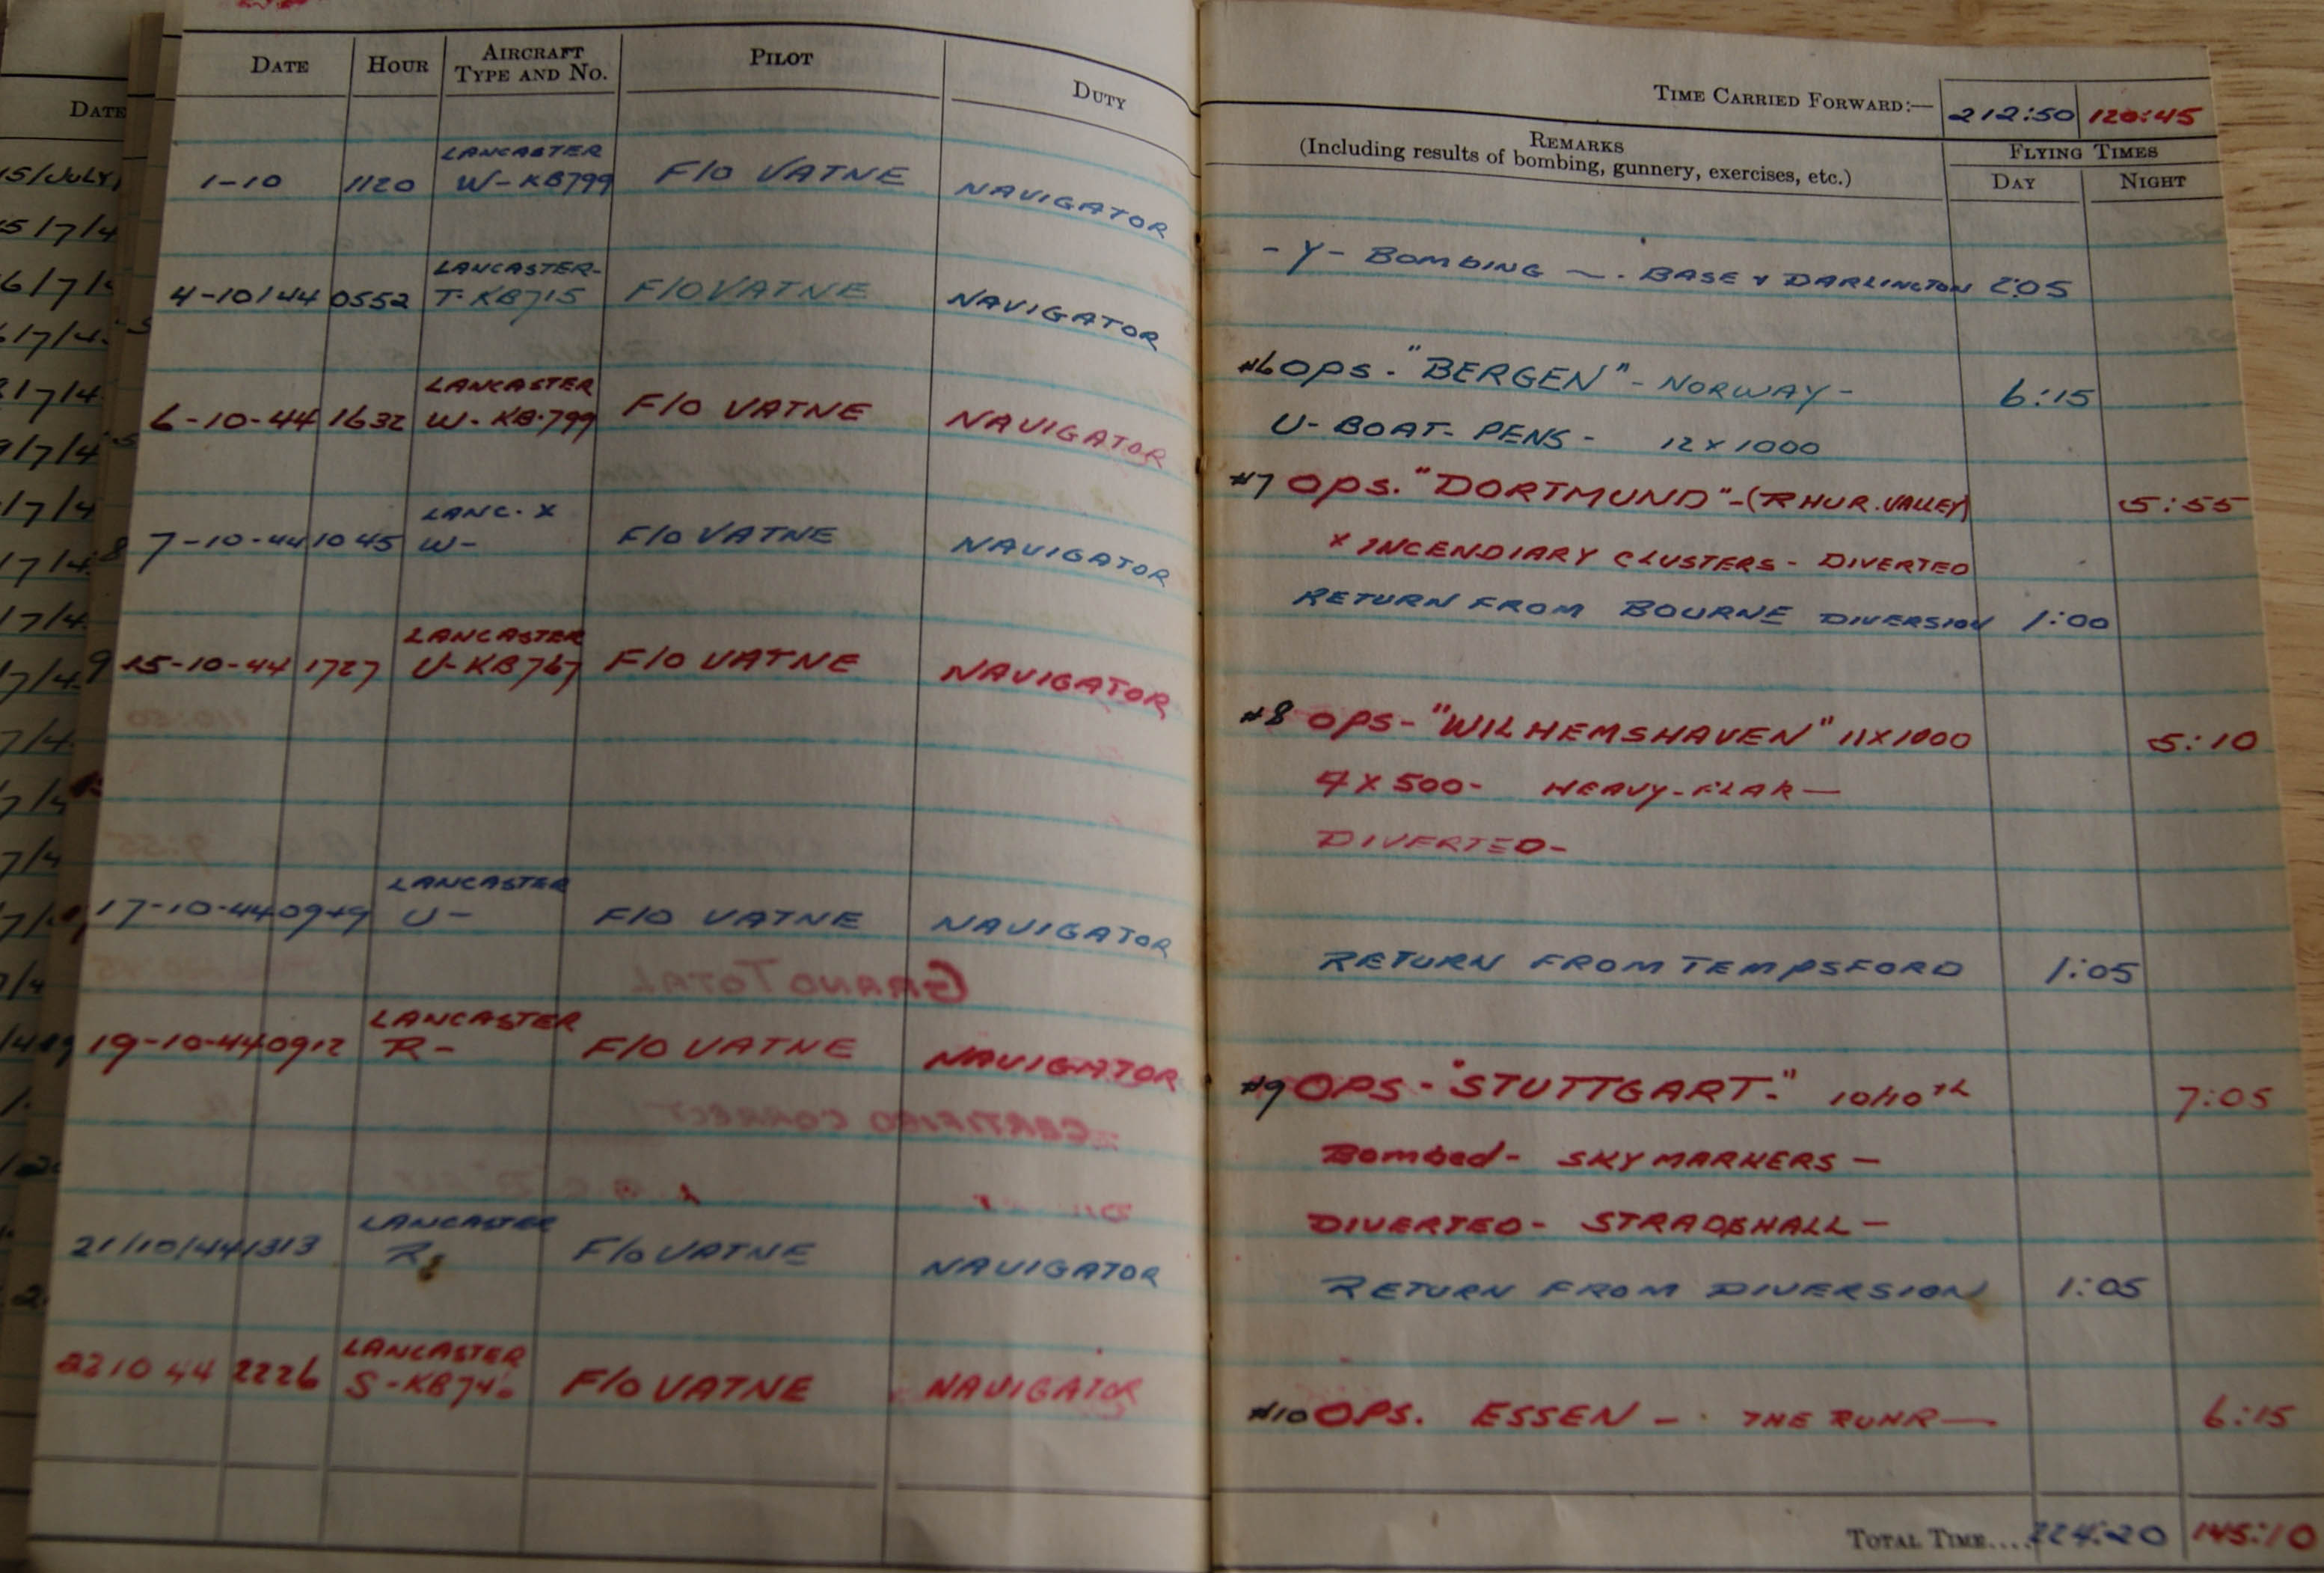 DATE HOUR AIRCRAFT TYPE AND NO. PILOT DUTY
1-10 1120 LANCASTER W-KB799 F/O VATNE NAVIGATOR
4-10/44 0552 LANCASTER- T-KB715 F/O VATNE NAVIGATOR
6-10-44 1632 LANCASTER W-KB.799 F/O VATNE NAVIGATOR
7-10-44 1045 LANC. X W- F/O VATNE NAVIGATOR
15-10-44 1727 LANCASTER U-KB767 F/O VATNE NAVIGATOR
17-10-44 0949 LANCASTER U- F/O VATNE NAVIGATOR
19-10-44 0912 LANCASTER R- F/O VATNE NAVIGATOR
21/10/44 1313 LANCASTER R F/O VATNE NAVIGATOR
22 10 44 2226 LANCASTER S-KB746 F/O VATNE NAVIGATOR
TIME CARRIED FORWARD:— 212:50 120:45
REMARKS
(Including results of bombing, gunnery, exercises, etc.)
FLYING TIMES
DAY NIGHT
- Y - BOMBING - . BASE & DARLINGTON 2:05
#6 OPS. "BERGEN" - NORWAY - 6:15
U-BOAT- PENS - 12 x 1000
#7 OPS. "DORTMUND" - (RHUR. VALLEY) 5:55
x INCENDIARY CLUSTERS - DIVERTED
RETURN FROM BOURNE DIVERSION 1:00
#8 OPS - "WILHEMSHAVEN" 11x1000 5:10
4 x 500 - HEAVY-FLAK—
DIVERTED-
RETURN FROM TEMPSFORD 1:05
#9 OPS - "STUTTGART." 10/10th 7:05
Bombed - SKYMARKERS —
DIVERTED - STRADSHALL —
RETURN FROM DIVERSION 1:05
#10 OPS. ESSEN - . THE RUHR— 6:15
TOTAL TIME.... 224:20 145:10
DATE
15/JULY/